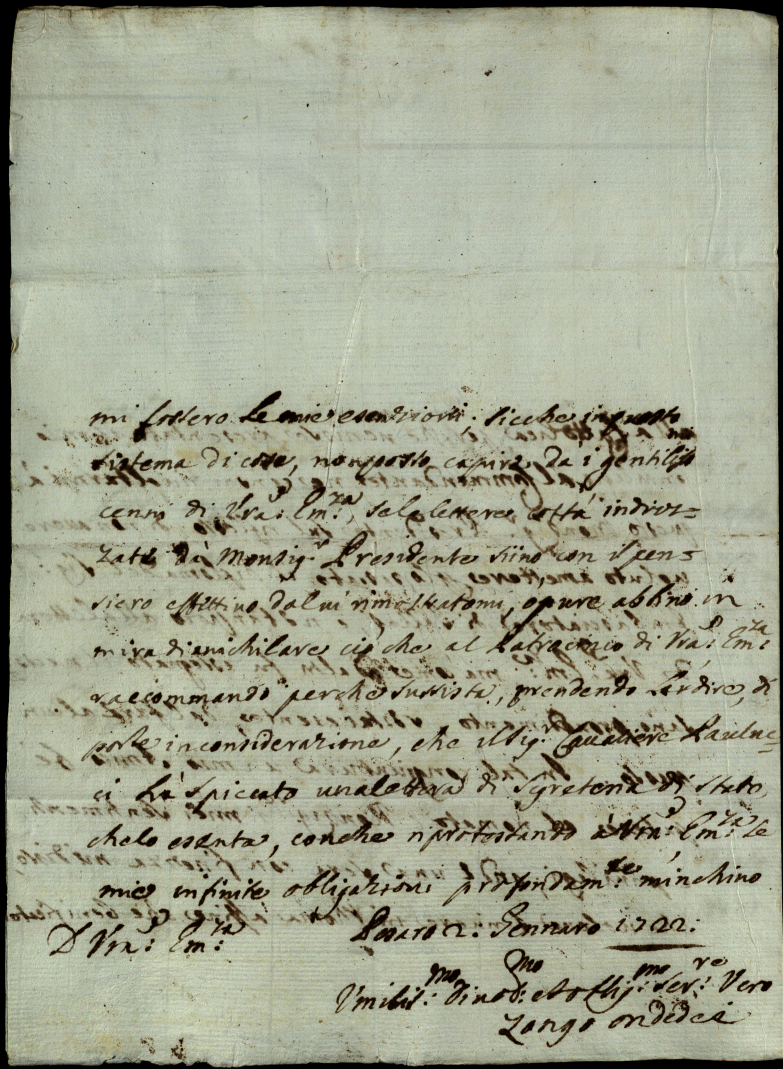 mi fossero le mie esenzioni, sicche in questo
sistema di cose, non posso capire da i gentiliss.mi
cenni di Vra: Em:za, se le lettere costà indiriz=
zate da Monsig.r Presidente siino con il pen=
siero effettivo da lui rimostratomi, opure abbino in
mira di anichilare ciò che al Patrocinio di Vra: Em:za
raccommando perche sussista, prendendo l'ardire, di
porle in considerazione, che il Sig. Cavaliere Pauluc=
ci hà spiccato una lettera di Sgreteria di Stato,
che lo esenta, con che riprotestando à Vra: Em:za le
mie infinite obligazioni profondam:te m'inchino
Pesaro 2: Gennaro 1722:
D Vra: Em:za
Umiliss:mo Divot:mo et Obblig:mo Ser:re Vero
Zongo Ondedei